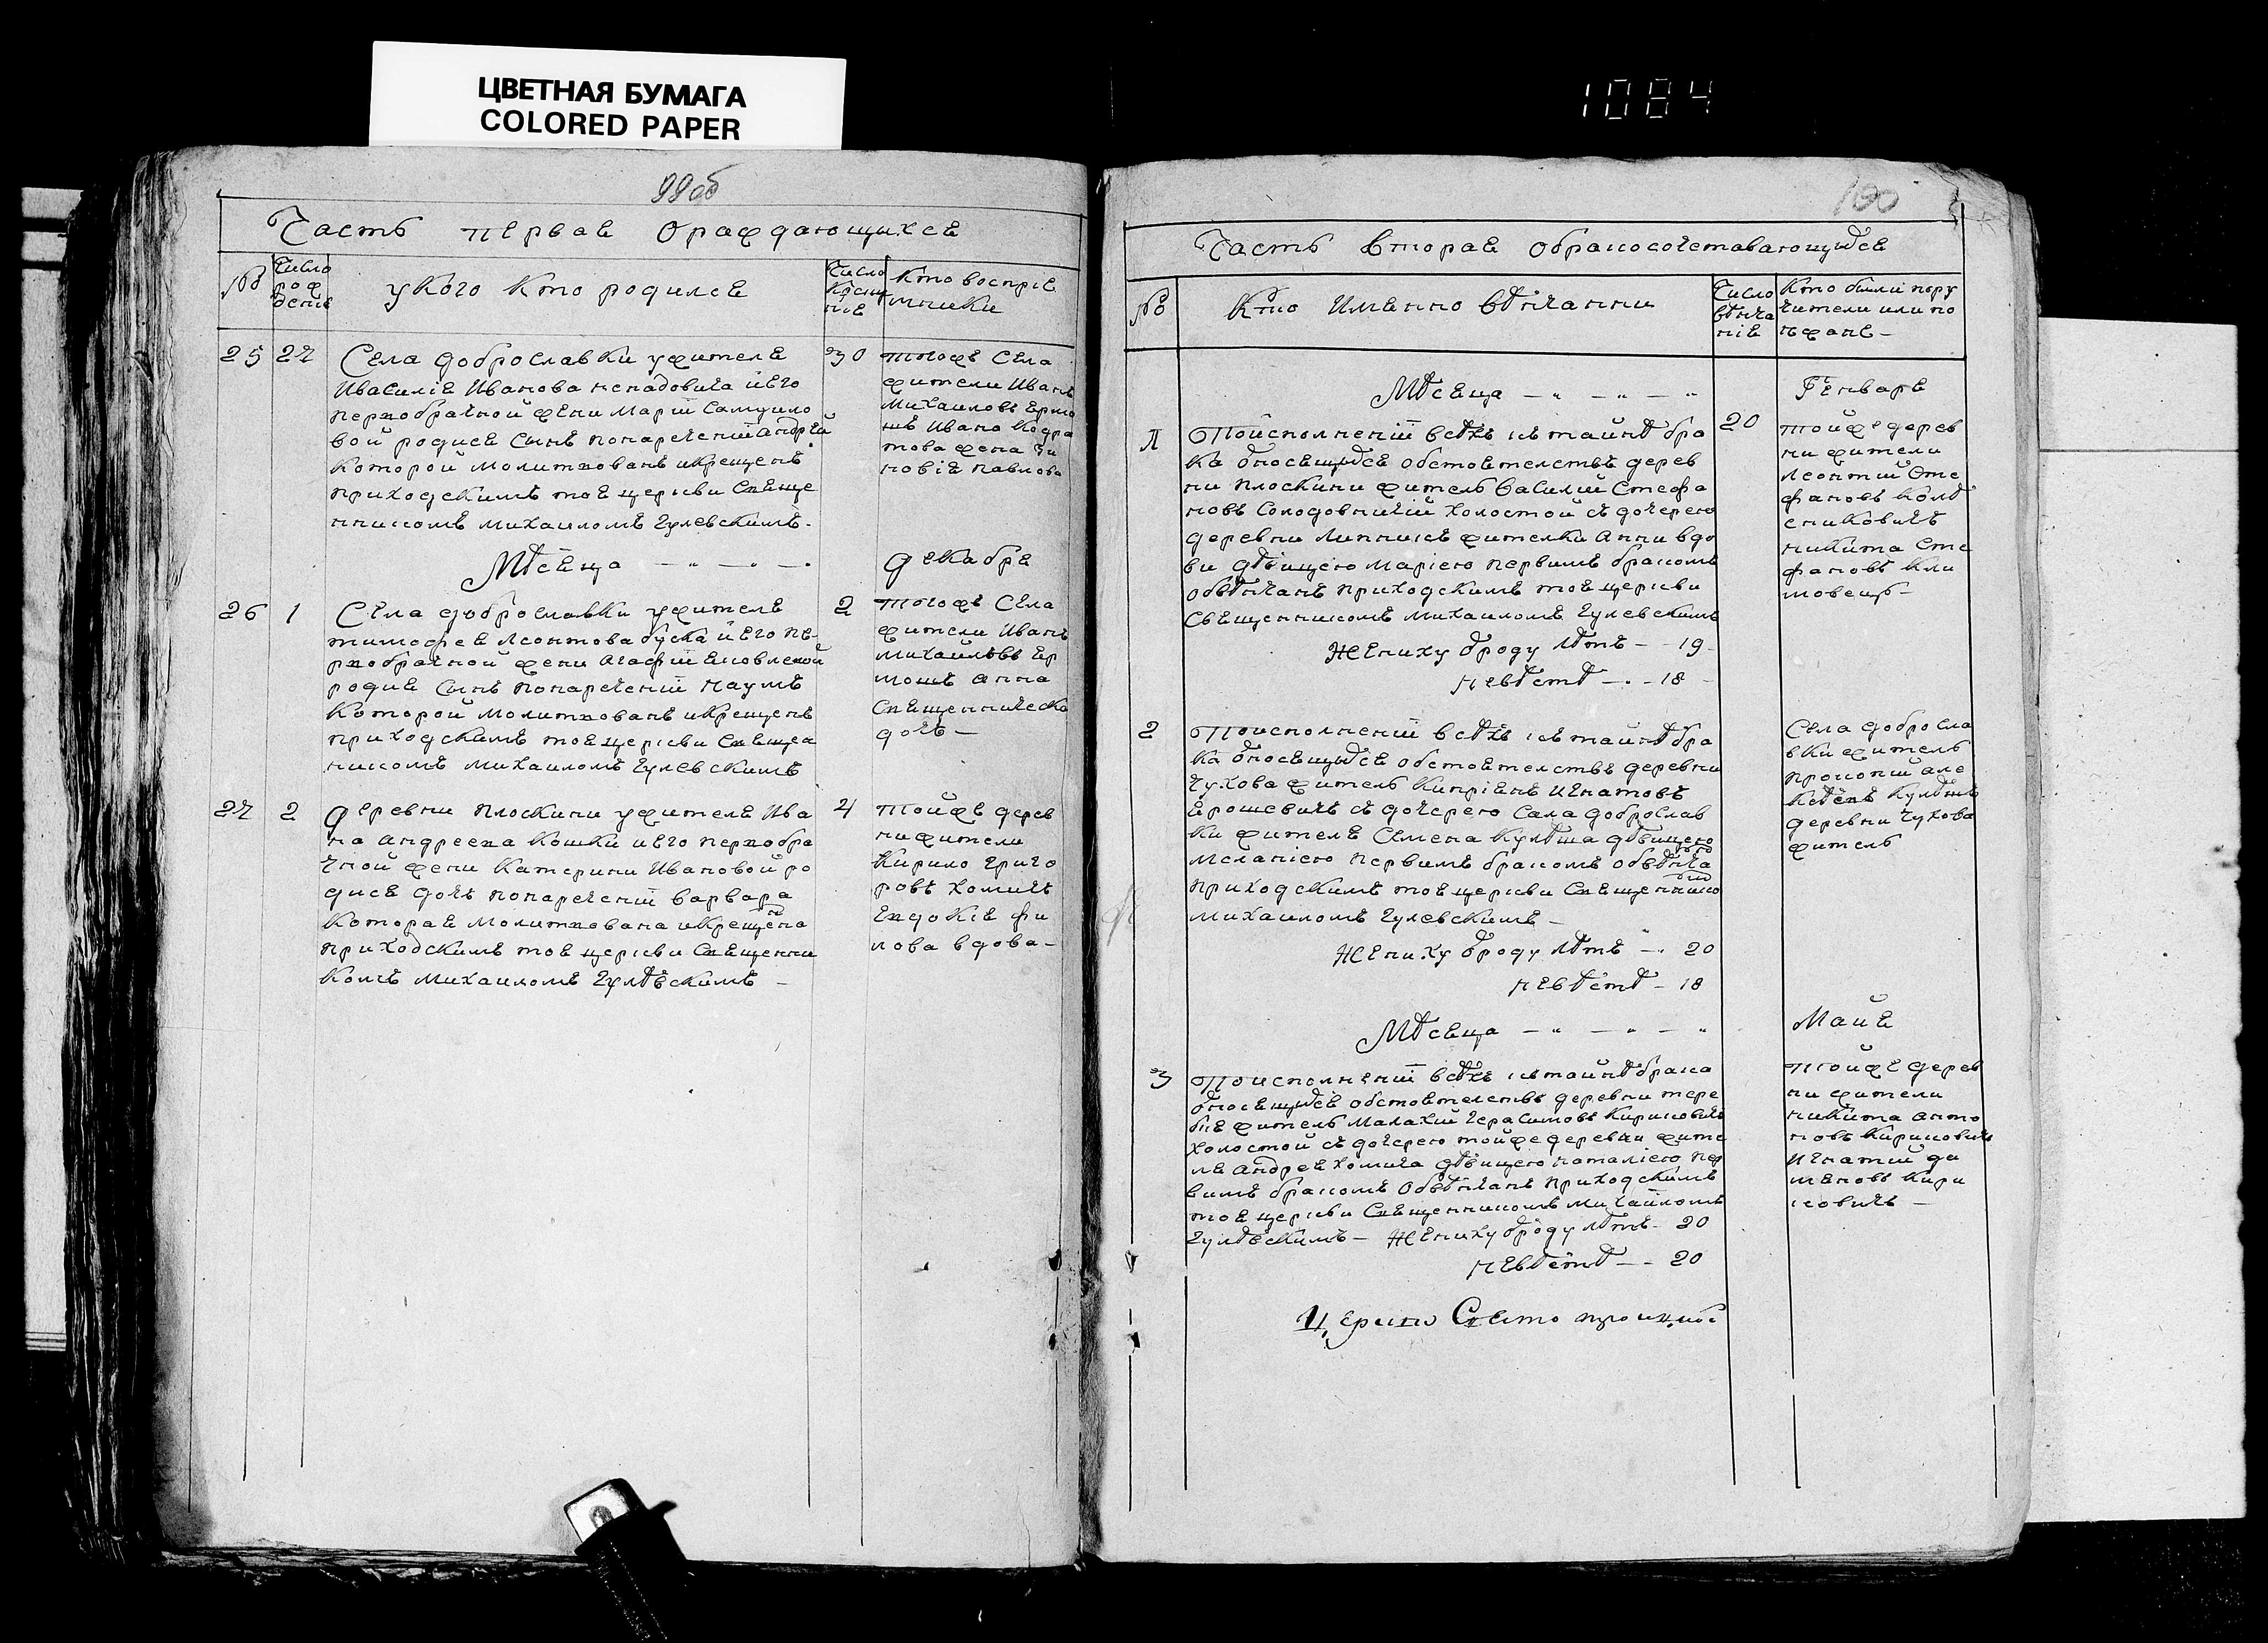 ЦВЕТНАЯ БУМАГА
COLORED PAPER
1084
99об
Часть первая ораждающихся
№
Число
рож
дения
у кого кто родился
Число
креще
ния
Кто восприе
мники
25 27
Села Доброславки ужителя
Ивасилия Иванова Ненадовича и его
первобрачной жени Марїи Самуило
вой родися сынъ нонаречений Андрей
которой молитвованъ икрещенъ
приходскимъ тоя церкви Свяще
нникомъ Михаиломъ Гулевскимъ.
30
тогоже Села
жители Иванъ
Михаиловъ Ермо
шъ Ивана Кодра
това жена Зи
новія Павлова
Мѣсяца
декабря
26 1
Села Доброславки ужителя
тимофея Леонтова буска и его пе
рвобрачной жени Агафїи Яковлевой
родися Сынъ нонаречений Наумъ
которой молитвованъ икрещенъ
приходскимъ тоя церкви Свящея
никомъ Михаиломъ Гулевскимъ
2
тогоже Села
жители Иванъ
Михайловъ Ер
мошъ Анна
Священническа
дочъ —
27 2
Деревни Плоскини ужителя Ива
на Андреева Кошки иего первобра
чной жени Катерини Ивановой ро
дися дочъ нонаречений варвара
которая молитвована икрещена
приходскимъ тоя церкви Священни
комъ Михаиломъ Гулѣвскимъ —
4
тойже дерев
нижители
Кирило Григо
ровъ Хомичъ
Евдокія Фи
лова вдова —
100
Часть вторая обракосочетавающихся
№
Кто Именно вѣнчанни
Число
вѣнча
нія
Кто били пору
чители или по
ѣжане —
Мѣсяца — „ — „ — „
Генваря
1
Поисполненїи всѣхъ къ тайнѣ бра
ка относящихся обстоятелствъ дерев
ни Плоскини житель Василий Стефа
новъ Солодовничій холостой съ дочерею
деревни Липникъ жителки Анни вдо
ви дѣвицею Маріею первимъ бракомъ
обвѣнчанъ приходскимъ тоя церкви
Священникомъ Михаиломъ Гулевскимъ
Жениху отроду лѣтъ — 19
невѣстѣ — 18
20
тойже дерев
ни жители
Леонтий Сте
фановъ Колѣ
сниковичъ
никита Сте
фановъ Кли
мовецъ —
2
Поисполненїи всѣхъ къ тайнѣ бра
ка относящихся обстоятелствъ деревни
Чухова житель Кипріянъ Игнатовъ
Ярошевичъ съ дочерею Села Доброслав
ки жителя Семена Кулѣша дѣвицею
Меланіею первимъ бракомъ обвѣнча
приходскимъ тоя церкви Священнико
Михаиломъ Гулевскимъ —
Жениху отроду лѣтъ — 20
невѣстѣ — 18
Села Добросла
вки житель
прокопий Але
ксѣевъ Кулѣшъ
деревни Чухова
житель
Мѣсяца — „ — „ — „
Маия
3
Поисполненїи всѣхъ къ тайнѣ брака
относящихся обстоятелствъ деревни тере
бня житель Малахий Герасимовъ Кириковичъ
холостой съ дочерею тойже деревни жите
ля Андрея Хомича дѣвицею Наталіею пер
вимъ бракомъ Обвѣнчанъ приходскимъ
тоя церкви Священникомъ Михайломъ
Гулѣвскимъ — Жениху отроду лѣтъ — 20
невѣстѣ — 20
тойже дерев
ни жители
никита Анто
новъ Кириковичъ
Игнатий Да
мяновъ Кири
ковичъ —
Церкви Свято троицкой